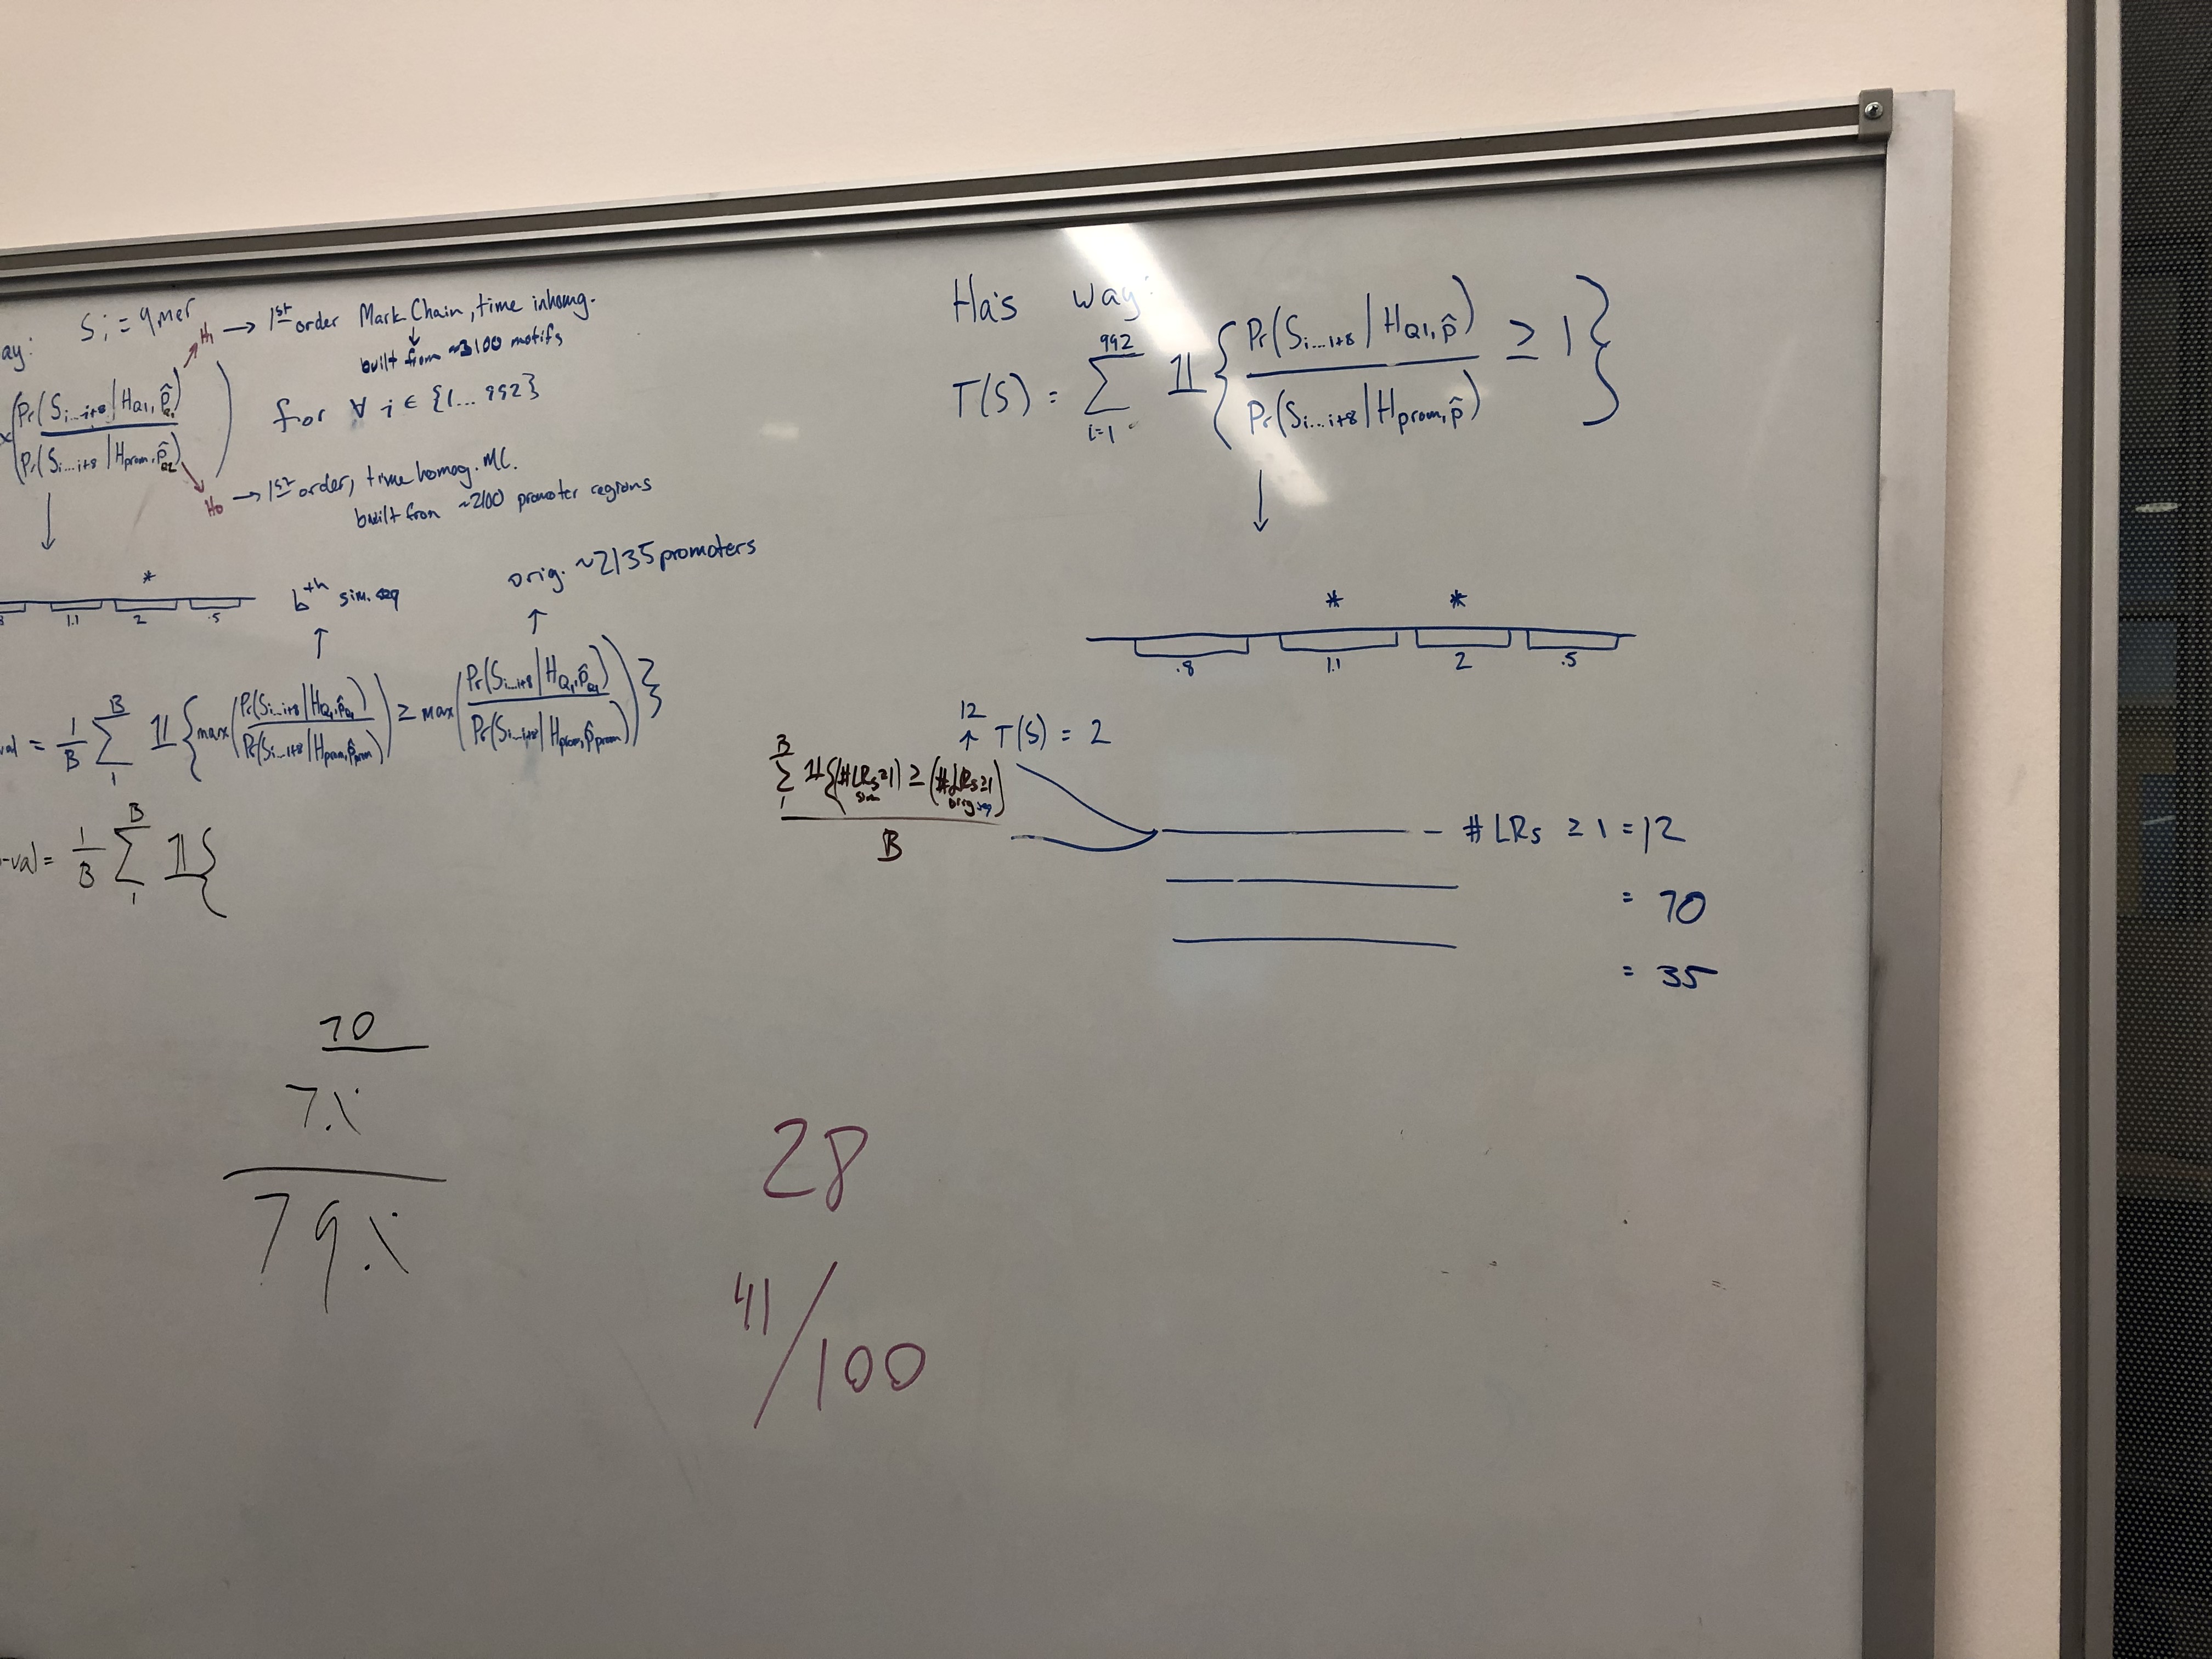 ay: Si = 9mer
H1 → 1st order Mark Chain, time inhomg.
built from ~3100 motifs
(Pr(Si...i+8 | HQ1, p̂Q1) / Pr(Si...i+8 | Hprom, p̂Q2)) for ∀ i ∈ {1...992}
H0 → 1st order, time homog. MC.
built from ~2100 promoter regions
↓
*
1.1 2 .5
bth sim. seq
↑
orig. ~2135 promoters
↑
val = 1/B B∑1 𝟙{max(Pr(Si...i+8 | HQ1, p̂Q1) / Pr(Si...i+8 | Hprom, p̂prom)) ≥ max(Pr(Si...i+8 | HQ1, p̂Q1) / Pr(Si...i+8 | Hprom, p̂prom))}
-val = 1/B B∑1 𝟙{
70
7%
79%
28
41/100
Ha's way:
T(S) = 992∑i=1 𝟙{Pr(Si...i+8 | HQ1, p̂) / Pr(Si...i+8 | Hprom, p̂) ≥ 1}
↓
* *
.8 1.1 2 .5
12
↑ T(S) = 2
B∑1 𝟙{(#LRs≥1) sim ≥ (#LRs≥1) orig seq} / B
— # LRs ≥ 1 = 12
= 70
= 35